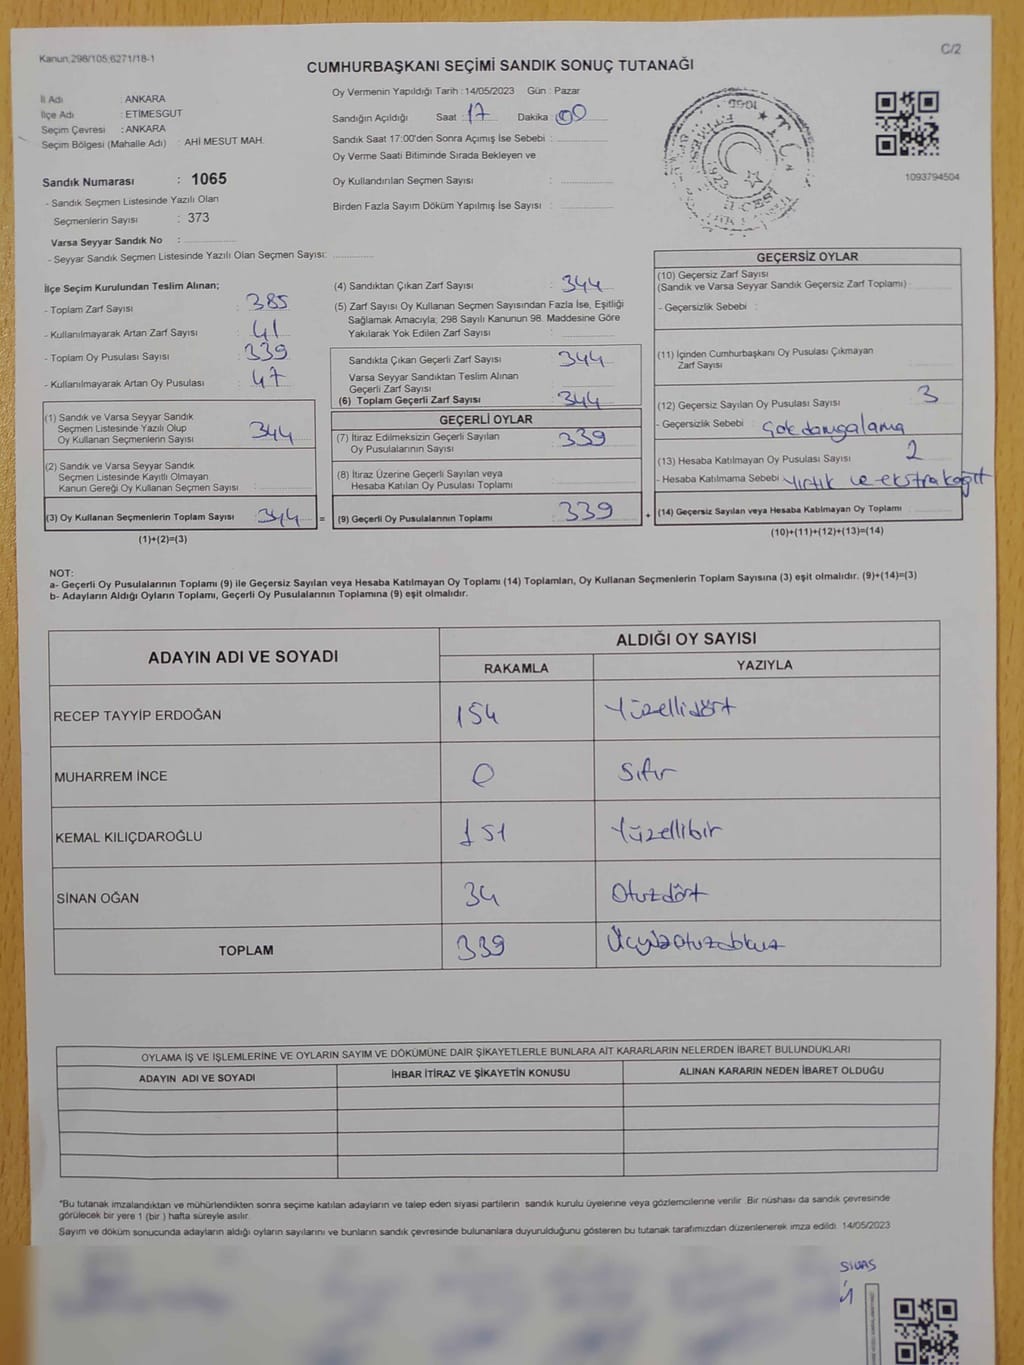 Kanun;298/105;6271/18-1
C/2
CUMHURBAŞKANI SEÇİMİ SANDIK SONUÇ TUTANAĞI
İl Adı : ANKARA
İlçe Adı : ETİMESGUT
Seçim Çevresi : ANKARA
Seçim Bölgesi (Mahalle Adı) : AHİ MESUT MAH.
Sandık Numarası : 1065
- Sandık Seçmen Listesinde Yazılı Olan
Seçmenlerin Sayısı : 373
Varsa Seyyar Sandık No :
- Seyyar Sandık Seçmen Listesinde Yazılı Olan Seçmen Sayısı:
Oy Vermenin Yapıldığı Tarih : 14/05/2023 Gün : Pazar
Sandığın Açıldığı Saat 17 Dakika 00
Sandık Saat 17:00'den Sonra Açımış İse Sebebi :
Oy Verme Saati Bitiminde Sırada Bekleyen ve
Oy Kullandırılan Seçmen Sayısı :
Birden Fazla Sayım Döküm Yapılmış İse Sayısı :
1065
T.C.
1923
1093794504
İlçe Seçim Kurulundan Teslim Alınan;
- Toplam Zarf Sayısı : 385
- Kullanılmayarak Artan Zarf Sayısı : 41
- Toplam Oy Pusulası Sayısı : 339
- Kullanılmayarak Artan Oy Pusulası : 47
(1) Sandık ve Varsa Seyyar Sandık
Seçmen Listesinde Yazılı Olup
Oy Kullanan Seçmenlerin Sayısı : 344
(2) Sandık ve Varsa Seyyar Sandık
Seçmen Listesinde Kayıtlı Olmayan
Kanun Gereği Oy Kullanan Seçmen Sayısı :
(3) Oy Kullanan Seçmenlerin Toplam Sayısı : 344 =
(1)+(2)=(3)
(4) Sandıktan Çıkan Zarf Sayısı : 344
(5) Zarf Sayısı Oy Kullanan Seçmen Sayısından Fazla İse, Eşitliği
Sağlamak Amacıyla; 298 Sayılı Kanunun 98. Maddesine Göre
Yakılarak Yok Edilen Zarf Sayısı :
Sandıkta Çıkan Geçerli Zarf Sayısı : 344
Varsa Seyyar Sandıktan Teslim Alınan
Geçerli Zarf Sayısı :
(6) Toplam Geçerli Zarf Sayısı : 344
GEÇERLİ OYLAR
(7) İtiraz Edilmeksizin Geçerli Sayılan : 339
Oy Pusulalarının Sayısı
(8) İtiraz Üzerine Geçerli Sayılan veya
Hesaba Katılan Oy Pusulası Toplamı :
(9) Geçerli Oy Pusulalarının Toplamı : 339 +
GEÇERSİZ OYLAR
(10) Geçersiz Zarf Sayısı
(Sandık ve Varsa Seyyar Sandık Geçersiz Zarf Toplamı) :
- Geçersizlik Sebebi :
(11) İçinden Cumhurbaşkanı Oy Pusulası Çıkmayan
Zarf Sayısı :
(12) Geçersiz Sayılan Oy Pusulası Sayısı : 3
- Geçersizlik Sebebi : çok damgalama
(13) Hesaba Katılmayan Oy Pusulası Sayısı : 2
- Hesaba Katılmama Sebebi : yırtık ve ekstra kağıt
(14) Geçersiz Sayılan veya Hesaba Katılmayan Oy Toplamı :
(10)+(11)+(12)+(13)=(14)
NOT:
a- Geçerli Oy Pusulalarının Toplamı (9) ile Geçersiz Sayılan veya Hesaba Katılmayan Oy Toplamı (14) Toplamları, Oy Kullanan Seçmenlerin Toplam Sayısına (3) eşit olmalıdır. (9)+(14)=(3)
b- Adayların Aldığı Oyların Toplamı, Geçerli Oy Pusulalarının Toplamına (9) eşit olmalıdır.
ADAYIN ADI VE SOYADI
ALDIĞI OY SAYISI
RAKAMLA YAZIYLA
RECEP TAYYİP ERDOĞAN 154 Yüzellidört
MUHARREM İNCE 0 Sıfır
KEMAL KILIÇDAROĞLU 151 Yüzellibir
SİNAN OĞAN 34 Otuzdört
TOPLAM 339 Üçyüzotuzdokuz
OYLAMA İŞ VE İŞLEMLERİNE VE OYLARIN SAYIM VE DÖKÜMÜNE DAİR ŞİKAYETLERLE BUNLARA AİT KARARLARIN NELERDEN İBARET BULUNDUKLARI
ADAYIN ADI VE SOYADI İHBAR İTİRAZ VE ŞİKAYETİN KONUSU ALINAN KARARIN NEDEN İBARET OLDUĞU
*Bu tutanak imzalandıktan ve mühürlendikten sonra seçime katılan adayların ve talep eden siyasi partilerin sandık kurulu üyelerine veya gözlemcilerine verilir. Bir nüshası da sandık çevresinde
görülecek bir yere 1 (bir ) hafta süreyle asılır.
Sayım ve döküm sonucunda adayların aldığı oyların sayılarını ve bunların sandık çevresinde bulunanlara duyurulduğunu gösteren bu tutanak tarafımızdan düzenlenerek imza edildi. 14/05/2023
SİVAS